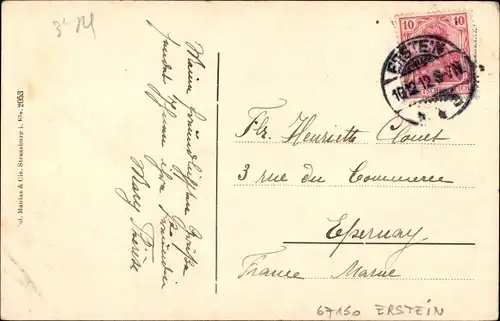 10 10
ERSTEIN
10.12.12.
Meine freundlichsten Grüße
sendet Ihnen Ihre Freundin
Mary Thérèse
Flr. Henriette Clouet
3 rue du Commerce
Epernay
France Marne
67150 ERSTEIN
Manias & Cie. Strassburg i. Els. 2053